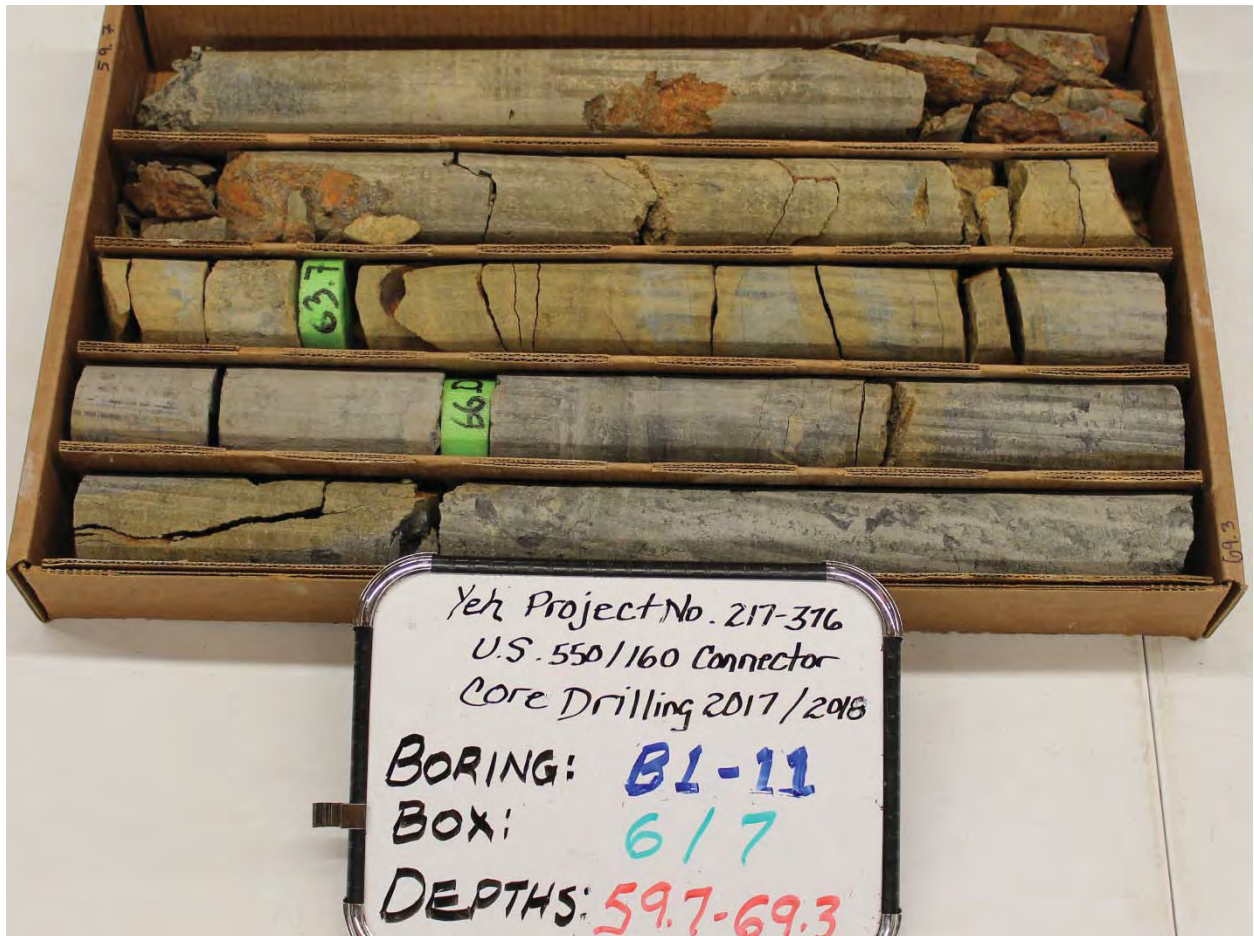 59.7
63.7
66.0
69.3
Yeh Project No. 217-376
U.S. 550/160 Connector
Core Drilling 2017/2018
BORING: B1-11
BOX: 6/7
DEPTHS: 59.7-69.3